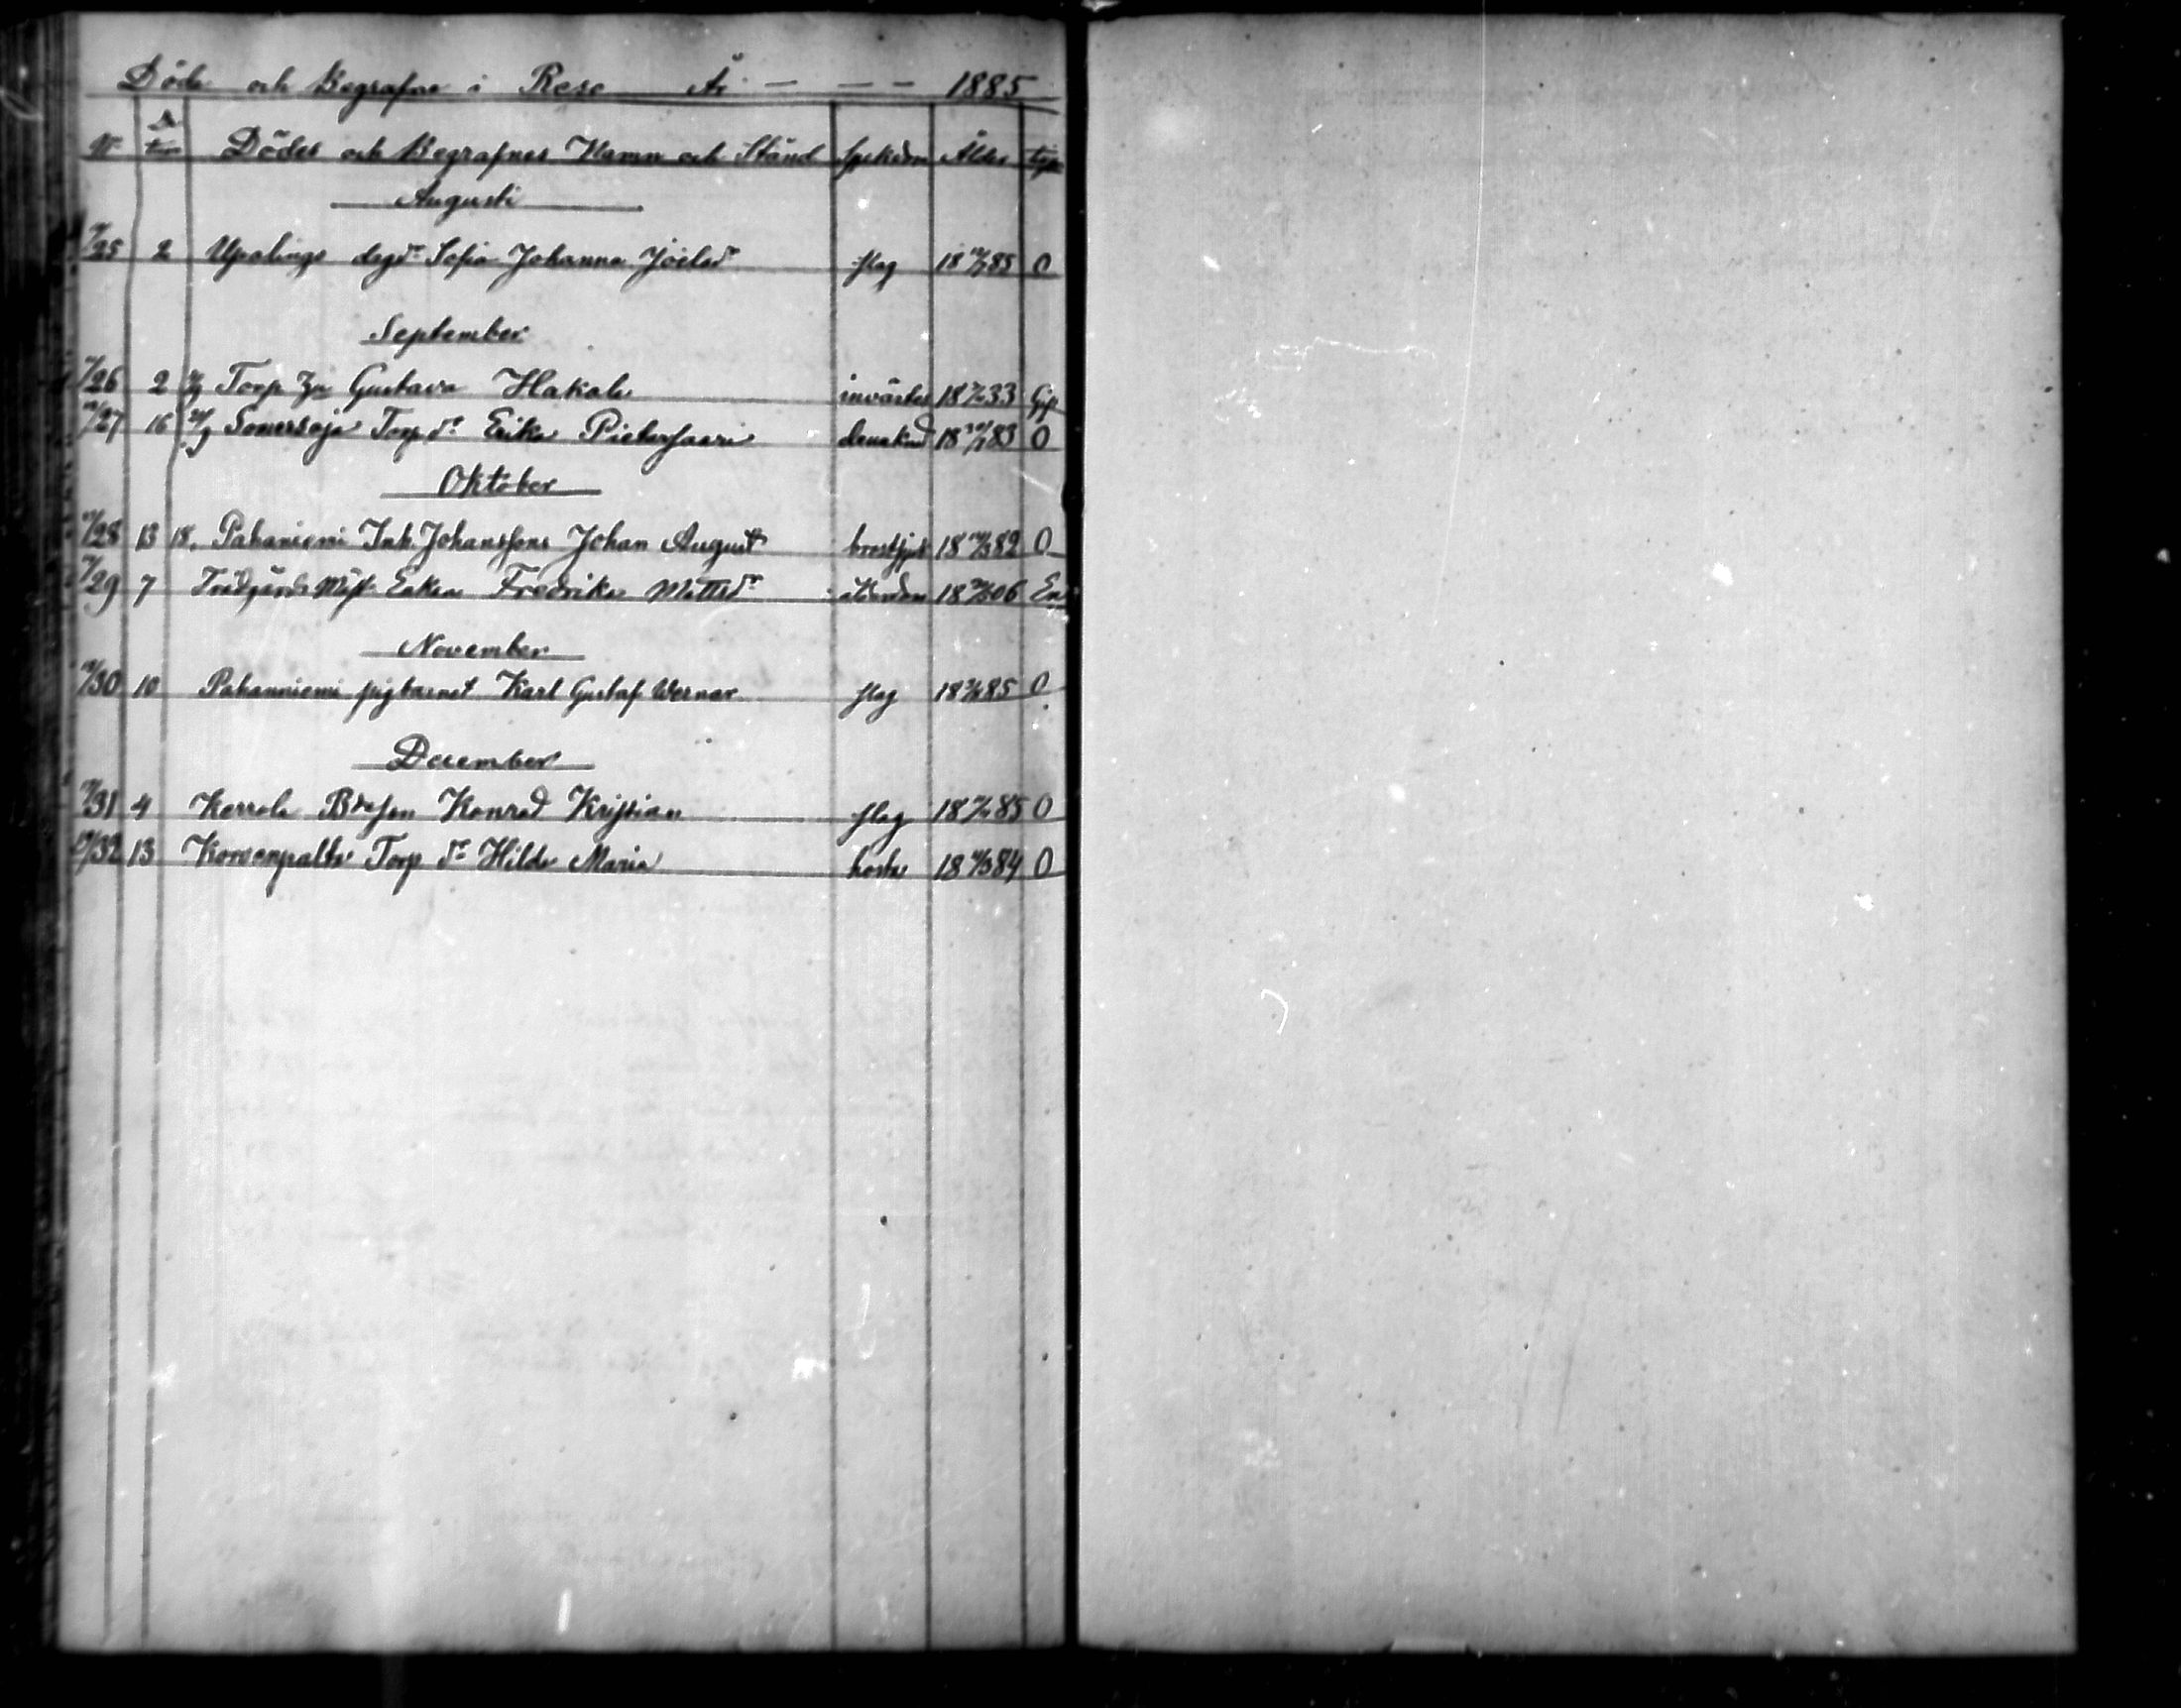 Döde och Begrafne i Reso År - - - 1885
N Dödes och Begrafnes Namn och Stånd Sjukdom Ålder
Augusti
25 2 Upalinge dagdr Sofia Johanna Joelsdr slag 18 85 O
September
26 2 Torp Gustava Hakala invärtes 18 33 Gift
27 16 Somersoja Torp dr Erika Pietarsaari 18 83 O
Oktober
28 13 18. Pahaniemi Inh. Johanssons Johan August brostsjuk 18 82 O
29 7 Trädgårds Mäst. Enkan Fredrika Mattsdr ålderdom 18 06 En
November
30 10 Pahanniemi pigbarnet Karl Gustaf Werner slag 18 85 O
December
31 4 Kerrola Konrad Kristian slag 18 85 O
32 13 Korvenpalta Torp dr Hilda Maria hosta 18 84 O